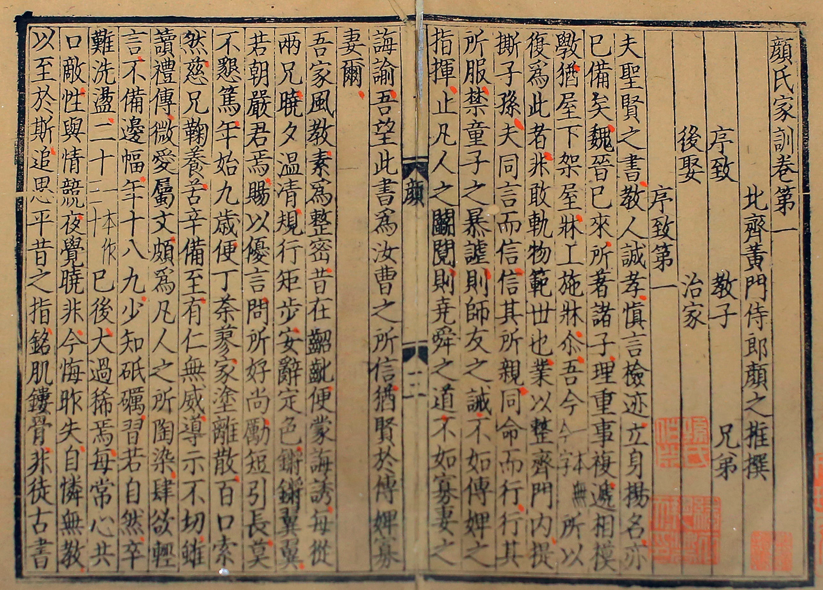 顏氏家訓卷第一
北齊黃門侍郎顏之推撰
序致 教子 兄弟
後娶 治家
序致第一
夫聖賢之書教人誠孝慎言檢迹立身揚名亦
已備矣魏晉已來所著諸子理重事複遞相模
斆猶屋下架屋牀上施牀尒吾今一本無今字所以
復爲此者非敢軌物範世也業以整齊門內提
撕子孫夫同言而信信其所親同命而行行其
所服禁童子之暴謔則師友之誡不如傅婢之
指揮止凡人之鬬鬩則堯舜之道不如寡妻之
顏 二
誨諭吾望此書爲汝曹之所信猶賢於傅婢寡
妻爾
吾家風教素爲整密昔在齠齔便蒙誨誘每從
兩兄曉夕温凊規行矩步安辭定色鏘鏘翼翼
若朝嚴君焉賜以優言問所好尚勵短引長莫
不懇篤年始九歲便丁荼蓼家塗離散百口索
然慈兄鞠養苦辛備至有仁無威導示不切雖
讀禮傳微愛屬文頗爲凡人之所陶染肆欲輕
言不備邊幅年十八九少知砥礪習若自然卒
難洗盪二十一本作三十已後大過稀焉每常心共
口敵性與情競夜覺曉非今悔昨失自憐無教
以至於斯追思平昔之指銘肌鏤骨非徒古書